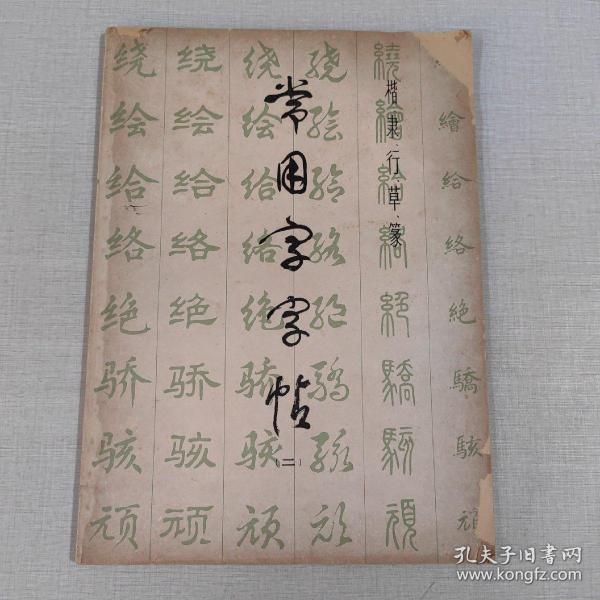 常用字字帖
（二）
楷、隶、行、草、篆
绕绘给络绝骄骇顽
绕绘给络绝骄骇顽
绕绘给络绝骄骇顽
绕绘给络绝骄骇顽
繞繪給絡絕驕駭頑
繪給絡絶驕駭頑
孔夫子旧书网
www.kongfz.com